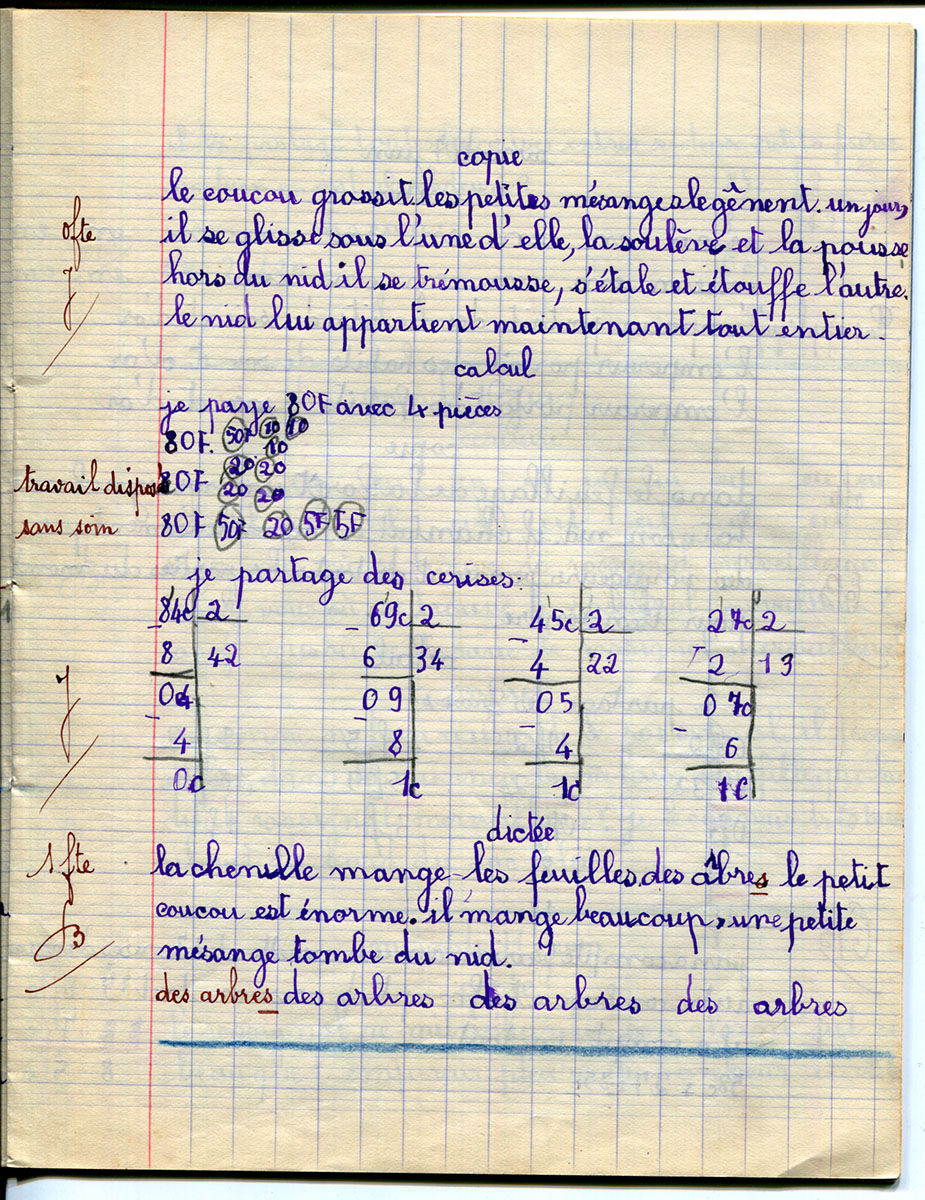 copie
le coucou grossit. les petites mésanges le gênent. un jour,
ofte
il se glisse sous l'une d'elle, la soulève et la pousse
hors du nid il se trémousse, s'étale et étouffe l'autre.
le nid lui appartient maintenant tout entier.
calcul
je paye 80F avec 4 pièces
80F. 50F 10 10
10
80F 20 20
travail disposé
20 20
sans soin
80F 50F 20 5F 5F
je partage des cerises.
84c 2 69c 2 45c 2 27c 2
- 8 42 - 6 34 - 4 22 - 2 13
04 09 05 07c
- 4 - 8 - 4 - 6
0c 1c 1c 1c
dictée
1 fte
la chenille mange les feuilles des âbres le petit
coucou est énorme. il mange beaucoup, une petite
B
mésange tombe du nid.
des arbres des arbres des arbres des arbres